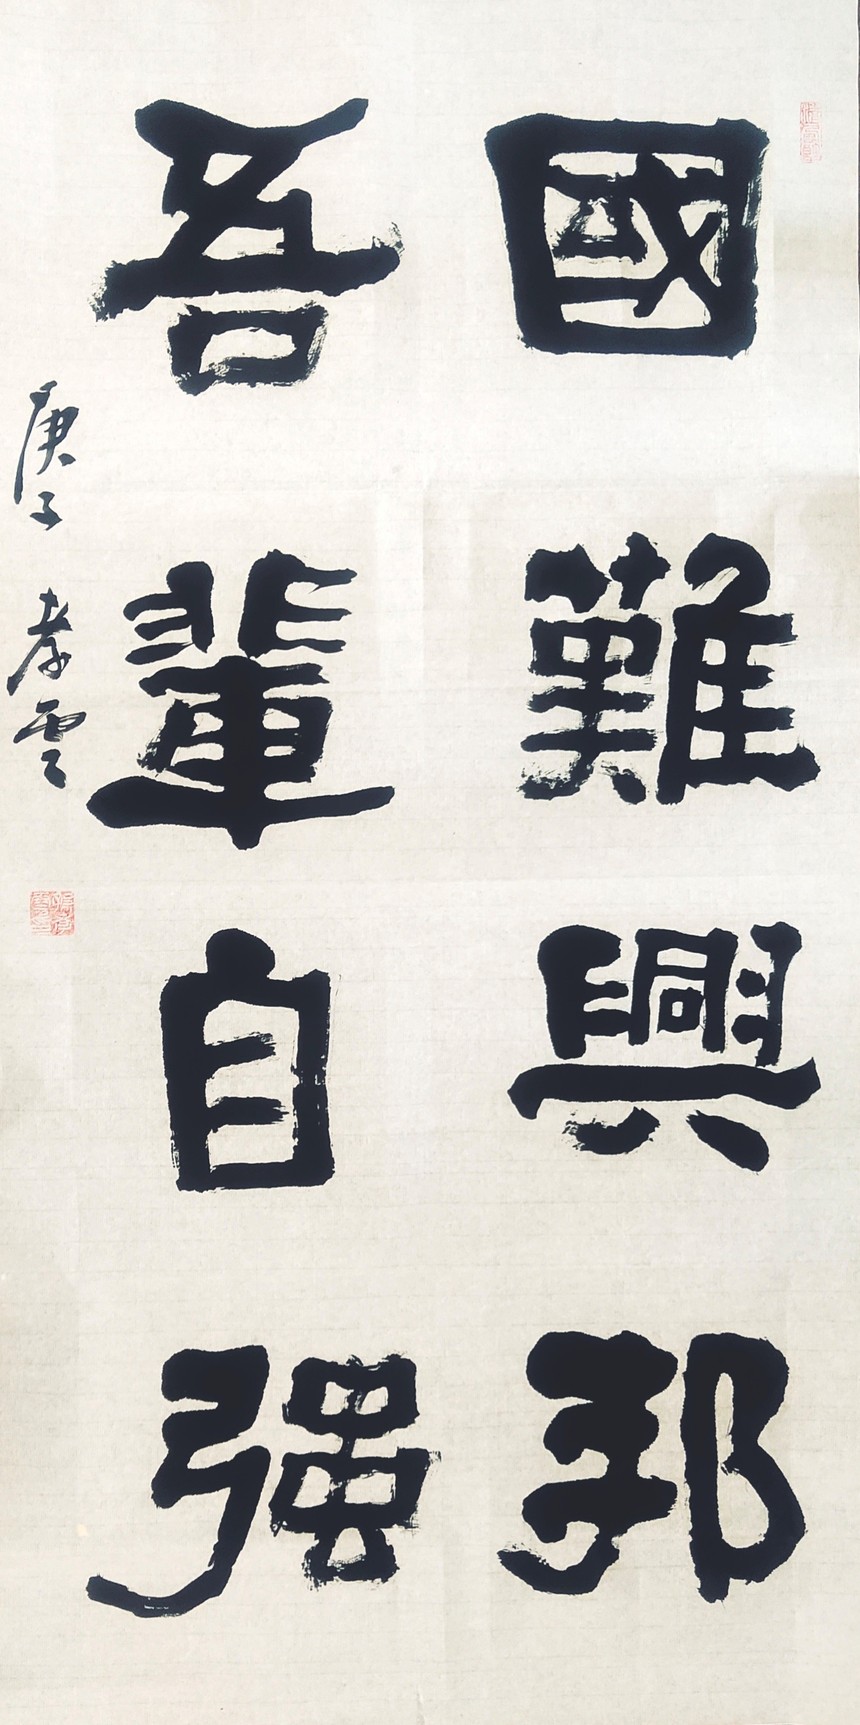 國難興邦
吾輩自强
庚子 孝雲